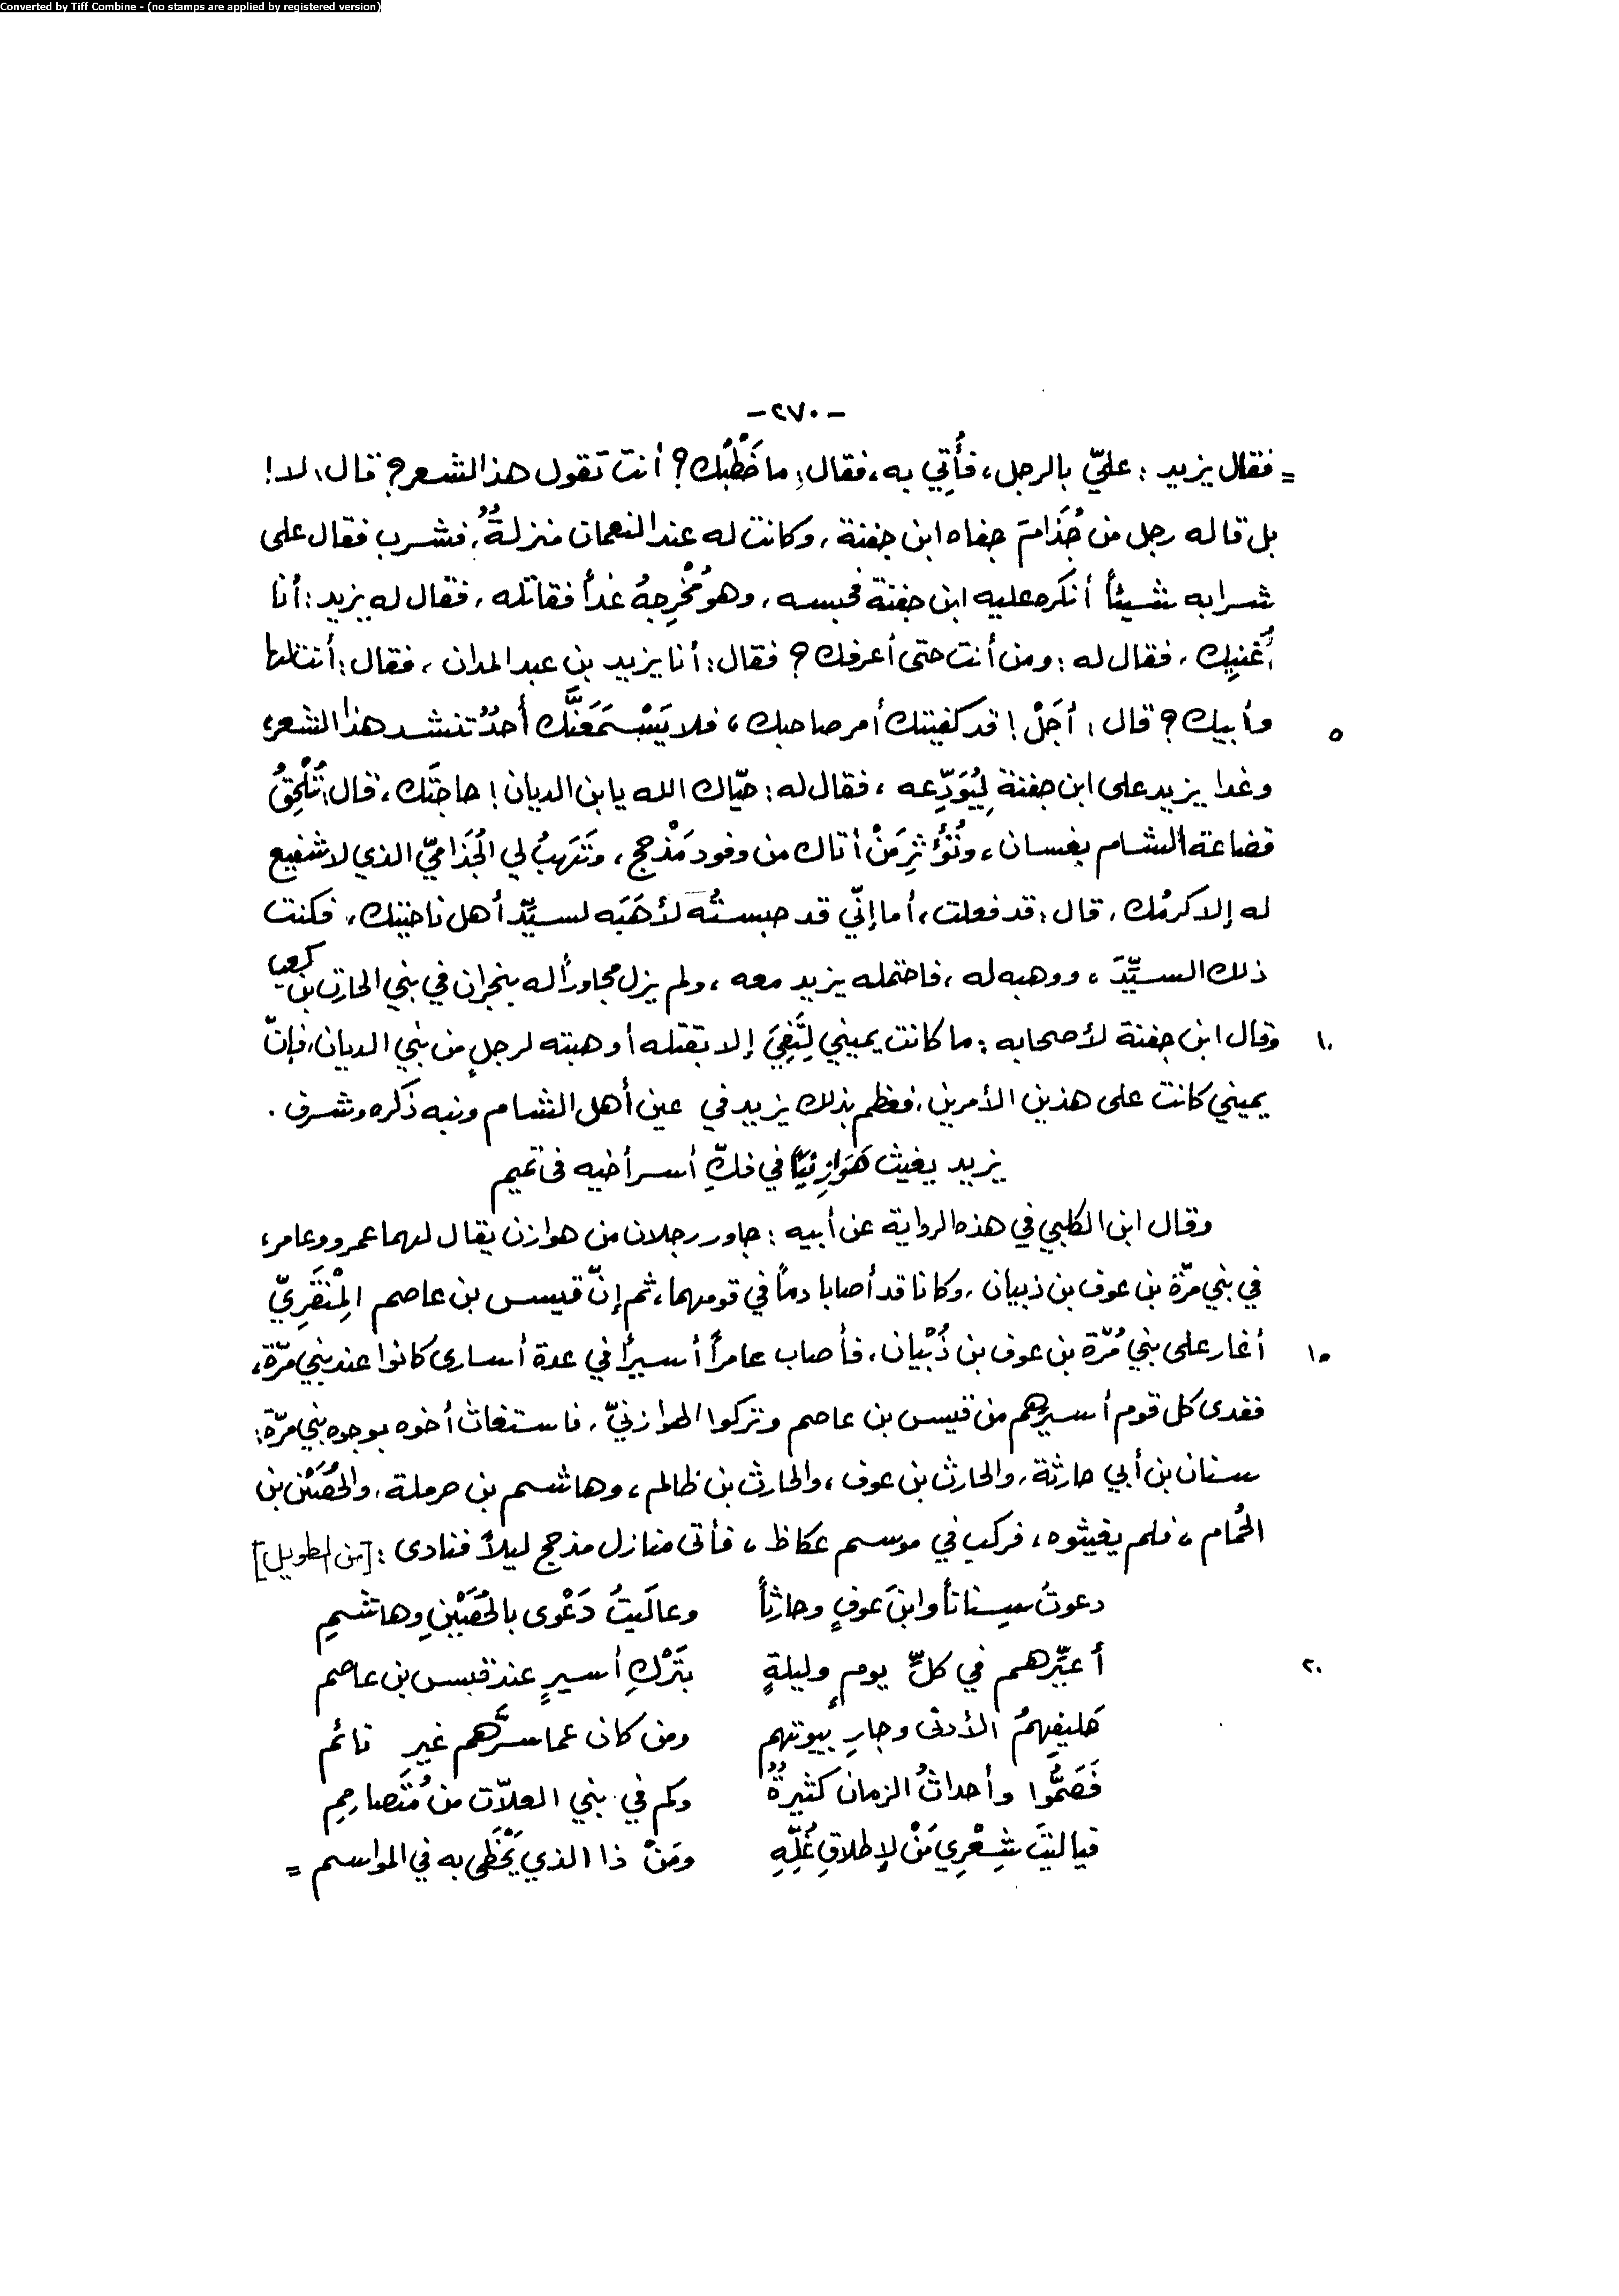 Converted by Tiff Combine - (no stamps are applied by registered version)
-٢٧٠-
= فقال يزيد : عليّ بالرجل، فأُتِي به، فقال: ما خَطْبُك؟ أنت تقول هذا الشعر؟ قال: لا!
بل قاله رجل من جُذَامَ جفاه ابن جفنة، وكانت له عند النعمان منزلةٌ، فشرب فقال على
شرابه شيئاً أنكره عليه ابن جفنة فحبسه، وهو مُخْرِجهُ غداً فقاتله، فقال له يزيد: أنا
أُغنِيك، فقال له: ومن أنت حتى أعرفك؟ فقال: أنا يزيد بن عبد المدان، فقال: أنت لها
وأبيك؟ قال: أجَلْ! قد كفيتك أمر صاحبك، فلا يَسْتَمَعَنَّك أحدٌ تنشد هذا الشعر،
٥
وغدا يزيد على ابن جفنة لِيُوَدِّعه، فقال له: حيّاك الله يا بن الديان! حاجتَك، قال: تُلْحِقُ
قضاعة الشام بغسان، وتُؤْثِر مَنْ أتاك من وفود مَذْحج، وتَهبُ لي الجُذَاميّ الذي لا شفيع
له إلا كرمُك، قال: قد فعلت، أما إنّي قد حبستُه لأهَبَه لسيِّد أهل ناحيتك، فكنت
ذلك السيِّدَ، ووهبه له، فاحتمله يزيد معه، ولم يزل مجاوراً له بنجران في بني الحارث بن كعب
وقال ابن جفنة لأصحابه: ما كانت يميني لِتَفِيَ إلا بقتله أو هبته لرجلٍ من بني الديان، فإنّ
١٠
يميني كانت على هذين الأمرين، فعظم بذلك يزيد في عين أهل الشام ونبه ذكره وشرف .
يزيد يغيث هَوَازِنِيّاً في فكِّ أسر أخيه في تميم
وقال ابن الكلبي في هذه الرواية عن أبيه : جاور رجلان من هوازن يقال لهما عمرو وعامر،
في بني مرّة بن عوف بن ذبيان، وكانا قد أصابا دماً في قومهما، ثم إنّ قيس بن عاصم المِنْقَرِيّ
أغار على بني مُرّة بن عوف بن ذُبْيان، فأصاب عامراً أسيراً في عدة أسارى كانوا عند بني مرّة،
١٥
ففدى كل قوم أسيرهم من قيس بن عاصم وتركوا الهوازنيّ، فاستغاث أخوه بوجوه بني مرّة:
سنان بن أبي حارثة، والحارث بن عوف، والحارث بن ظالم، وهاشم بن حرملة، والحُصَيْن بن
الحُمام، فلم يغيثوه، فركب في موسم عكاظ، فأتى منازل مذحج ليلاً فنادى : [من الطويل]
دعوتُ سِناناً وابنَ عوفٍ وحارثاً وعالَيتُ دَعْوى بالحُصَيْنِ وهاشمِ
أُعيِّرهم في كلِّ يومٍ وليلةٍ بتَرْكِ أسيرٍ عند قيس بن عاصم
٢٠
حَليفِهمُ الأدنى وجارِ بيوتهم ومن كان عما سرَّهم غير نائم
فَصَمُّوا وأحداثُ الزمان كثيرةٌ وكم في بني العلاّت من مُتَصامِمِ
فيا ليتَ شِعْرِي مَنْ لإطلاقِ غُلِّهِ ومَنْ ذا الذي يَحْظَى به في المواسم =